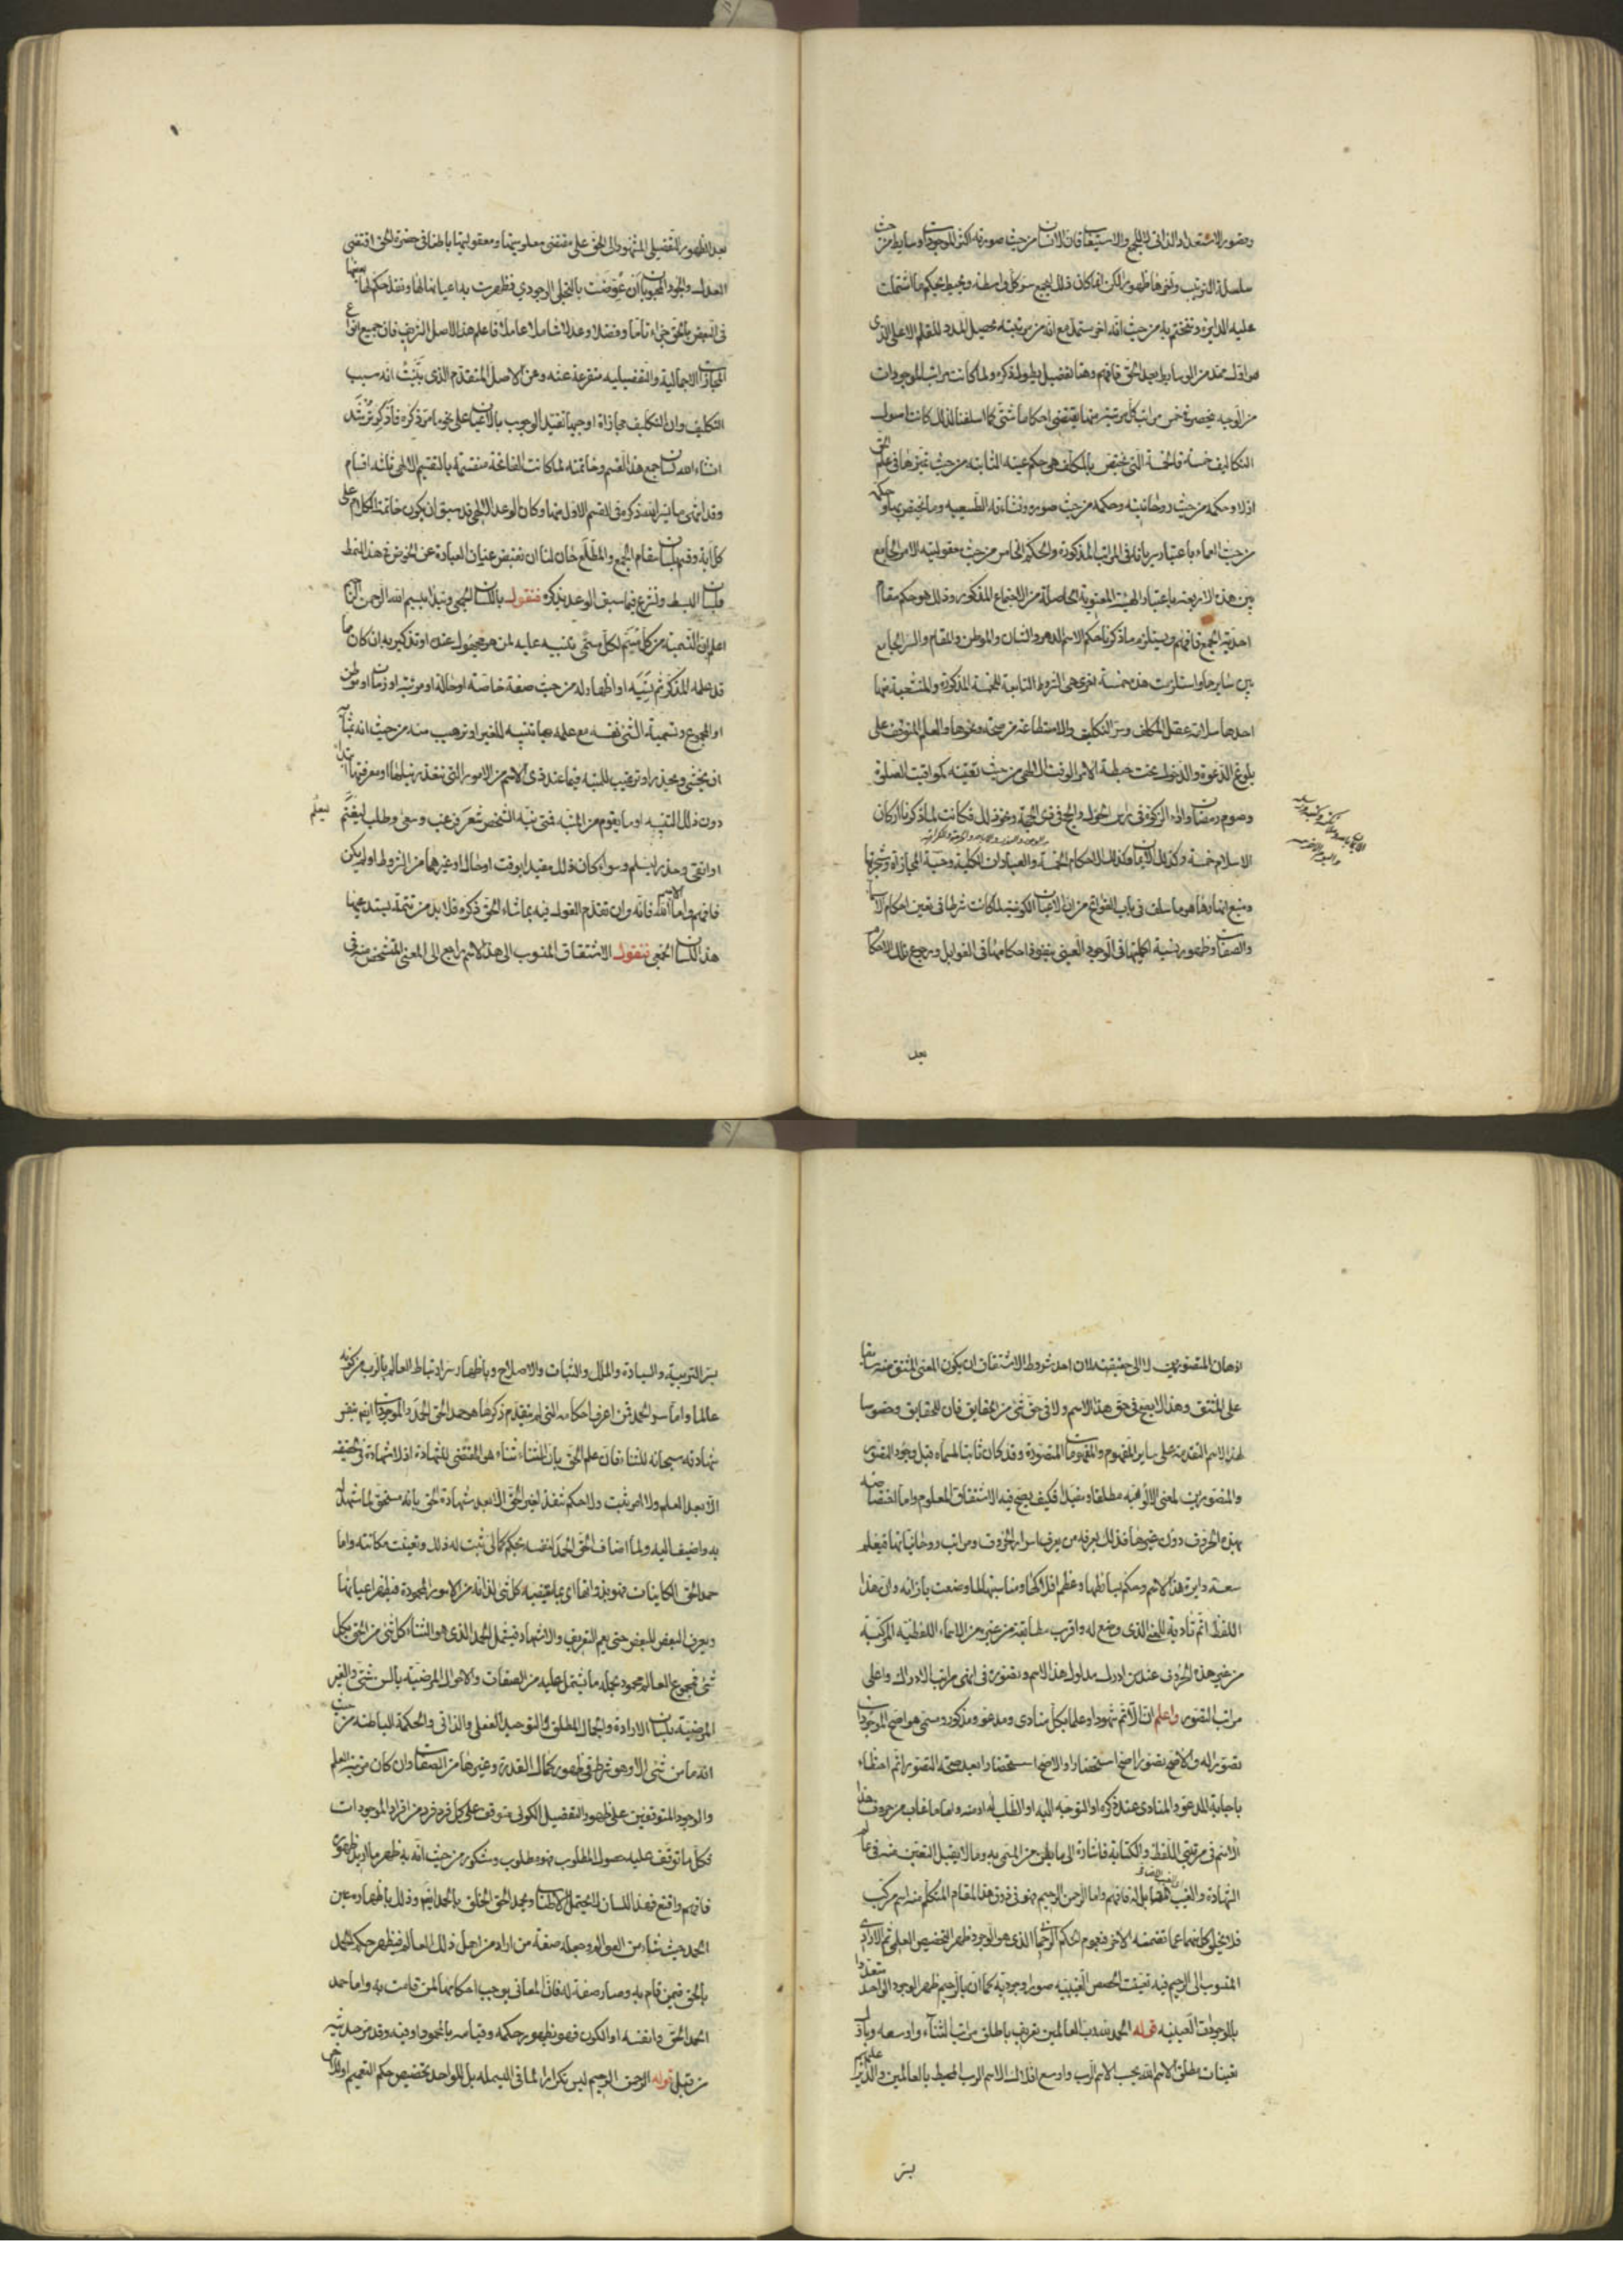 وحضور الاستعداد الذاتى الالهى والاستيفا فان الانسان من حيث صورته اكثر الموجودات وسايط من حيث
سلسلة الترتيب واخرها ظهورا لكن انما كان ذلك ليجمع سر كل واسطة ويحيط بحكم ما اشتملت
عليه الدايرة وتختتم به من حيث انه اخر مستمد مع انه من مرتبته يحصل المدد للقلم الاعلى الذى
هو اول ممد من الوسايط بعد الحق فافهم وهنا تفصيل يطول ذكره ولما كانت مراتب الموجودات
من الوجه منحصرة فى خمس مراتب كل مرتبة منها يقتضى احكاما شتى كما اسلفنا لذلك كانت اصول
التكاليف خمسة فالخمسة التى تختص بالمكلف هى حكم عينه الثابتة من حيث تميزها فى علم الحق
ازلا وحكمه من حيث روحانيته وحكمه من حيث صورته ونشاءته الطبيعيه وما يختص بها وحكمه
من حيث العماء باعتبار سريانه فى المراتب المذكورة والحكم الخامس من حيث معقولية الامر الجامع
بين هذه الاربعة باعتبار الهيئة المعنوية الحاصلة من الاجتماع المذكور وذلك هو حكم مقام
احدية الجمع فافهم ويستلزم ما ذكرنا حكم الاسم الدهر والشان والموطن والمقام والسر الجامع
بين سايرها واستلزمت هذه خمسة اخرى هى الشروط التابعة للخمسة المذكورة والمنتشية منها
احدها سلامة عقل المكلف وسن التكليف والاستطاعة من صحة ونحوها والعلم المتوقف على
بلوغ الدعوة والدخول تحت حيطة الامر الوقت الالهى من حيث تعينه كمواقيت الصلوة
وصوم رمضان واداء الزكوة فى راس الحول والحج فى ذى الحجة ونحو ذلك فكانت لما ذكرنا اركان
الاسلام خمسة وكذلك الايمان وكذلك الاحكام الخمسة والعبادات الكلية وجنة المجازاة وشجرتها
ومنبع انهارها هو ما سلف فى باب الفواتح من ان الاعيان الكونية لما كانت شرطا فى تعين احكام الاسماء
والصفات وظهور نسبة اكمليتها فى الوجود العينى بنفوذ احكامها فى القوابل ورجوع تلك الاحكام
بعد
بعد الظهور التفصيلى المشهود الى الحق على مقتضى معلوميتها ومعقوليتها باطنا فى حضرة الحق اقتضى
العدل والجود المحبوبان ان عوضت بالتجلى الوجودى فظهرت به اعيانها لها ونفذ حكم بعضها
فى البعض بالحق جزاء تاما وفضلا وعدلا شاملا عاملا فاعلم هذا الاصل الشريف فان جميع انواع
المجازات الاجمالية والتفصيليه متفرعة عنه وعن الاصل المتقدم الذى بينت انه سبب
التكليف وان التكليف مجازاة اوجبها تقيد الوجوب بالاعيان على نحو ما مر ذكره فاذكر ترشد
ان شاء الله لسان جمع هذا القسم وخاتمته لما كانت الفاتحة منقسمة بالتقسيم الالهى ثلثه اقسام
وقد انتهى ما يسر الله ذكره فى القسم الاول منها وكان الوعد الالهى قد سبق ان يكون خاتمة الكلام على
كل آية وقسم بلسان مقام الجمع والمطلع حان لنا ان نقبض عنان العبارة عن الخوض فى هذا النمط
بلسان البسط ونشرع فيما سبق الوعد بذكره فنقول باللسان الجمعى ونبدأ ببسم الله الرحمن الرحيم
اعلم ان التسمية من كل مسم لكل مسمى تنبيه عليه لمن هو مجهول عنده او تذكير به ان كان ما
قد علمه المذكر ثم نسيه او اظهار له من حيث صفة خاصة او حالة او مرتبة او زمان او موطن
او المجموع وتسمية الشئ نفسه مع علمه بها تنبيه للغير او ترهيب منه من حيث انه شأنه
ان يخشى ويحذر او ترغيب للمنبه فيما عند ذى الاسم من الامور التى تتعذر نيلها او معرفتها ابتداء
دون ذلك التنبيه او ما يقوم من المنبه فمتى نبه الشخص تعرف عنى وسعى وطلب ليغنم
او اتقى وحذر ليسلم وسواء كان ذلك مقيدا بوقت او حال او غيرهما من الشروط او لم يكن
فافهم واما الاسم الله فانه وان تقدم القول فيه بما شاء الحق ذكره فلا بد من تتمة يستدعيها
هذا اللسان الجمعى فنقول الاشتقاق المنسوب الى هذا الاسم راجع الى المعنى المتشخص منه فى
اذهان المتصورين لا الى حقيقته لان احد شروط الاشتقاق ان يكون المعنى المشتق منه سابقا
على المشتق وهذا لا يصح فى حق هذا الاسم ولا فى حق شئ من الحقايق فان للحقايق وخصوصا
لهذا الاسم التقدم على ساير المفهوم والمفهومات المتصورة وقد كان ثابتا لمسماه قبل وجود التصور
والمتصورين لمعنى الالوهيه مطلقا ومقيدا فكيف يصح فيه الاشتقاق المعلوم واما اختصاصه
بهذه الحروف دون غيرها فذلك يعرفه من يعرف اسرار الحروف ومراتب روحانياتها فيعلم
سعة دايرة هذا الاسم وحكم بسائطها وعظم افلاكها ومناسبتها لما وضعت بازائه وان هذا
اللفظ اتم تادية للمعنى الذى وضع له واقرب مطابقة من غيره من الاسماء اللفظيه المركبة
من غير هذه الحروف عند من ادرك مدلول هذا الاسم وتصوره فى انهى مراتب الادراك واعلى
مراتب التصور واعلم ان الاتم شهودا وعلما بكل منادى ومدعو ومذكور ومسمى هو اصح الموجودات
تصورا له والاصح تصورا اصح استحضارا والاصح استحضارا بعد صحة التصور اتم احتظاء
باجابة المدعو والمنادى عند ذكره او التوجه اليه او الطلب له او منه واما ما غاب من حروف هذا
الاسم فى مرتبتى اللفظ والكتابة فاشارة الى ما بطن من المسمى به وما لا يقبل التعين منه فى عالم
الشهادة والغيب المضاف المقابل له فافهم واما الرحمن الرحيم فهو فى ذوق هذا المقام المتكلم منه اسم مركب
فلا يخلو كل منهما عما تضمنه الاخر فبعموم الحكم الرحمانى الذى هو الوجود ظهر التخصيص العلمى ثم الارادى
المنسوب الى الرحيم فيه تعينت الحصص الغيبيه صورا وجوديه كما ان بالرحيم ظهر الوجود الواحد متعددا
بالموجودات العينيه قوله الحمد لله رب العالمين تعريف باطلق مراتب الثناء واوسعه وباول
تعينات مطلق الاسم الله بحسب الاسم الرب واوسع افلاك الاسم الرب المحيط بالعالمين
بسر
بسر التربية والسيادة والملك والثبات والاصلاح وباظهار سر ارتباط العالم بالرب من كونه
عالما واما سر الحمد فمن اعرف احكامه التى لم يتقدم ذكرها هو حمد الحق الحمد والموجودات ايضا بنفس
شهادته سبحانه للثناء فان علم الحق بان الثناء ثناء هو المقتضى للشهادة اذ لا شهادة محققه
الا بعد العلم ولا امر يثبت ولا حكم ينفذ لغير الحق الا بعد شهادة الحق بانه مستحق لما شهد له
به واضيف اليه ولما اضاف الحق الحمد لنفسه بحكم كمالى ثبت له ذلك وتعينت مكانته واما
حمد الحق الكاينات فهو بذواتها اى بما يقتضيه كل شئ لذاته من الامور المحمودة فيظهر اعيانها
ويعرف البعض للبعض حتى يعم التعريف والاشهاد فيشمل الحمد الذى هو الثناء كل شئ من الحق بكل
شئ فمجموع العالم محمود بجملة ما يشتمل عليه من الصفات والاحوال المرضيه بالسن شتى والغير
المرضية بلسان الارادة والجمال المطلق والتوحيد الفعلى والذاتى والحكمة الباطنه من حيث
انه ما من شئ الا وهو شرط فى ظهور كمال القدرة وغيرها من الصفات وان كان مرتبة العلم
والوجود المتوقفين على ظهور التفصيل الكونى متوقف على كل فرد فرد من افراد الموجودات
فكل ما توقف عليه حصول المطلوب فهو مطلوب ومشكور من حيث انه به ظهر ما اريد ظهوره
فافهم واقنع فهذا اللسان لا يحتمل الاطناب ويحمد الحق الخلق بالحمد ايضا وذلك باظهار عين
الحمد حيث شاء من العوالم وجعله صفة من اراد من اجل ذلك العالم فيظهر حكم الحمد
بالحق فيمن قام به وصار صفة له فان المعانى يوجب احكامها لمن قامت به واما حمد
الحمد الحق او نفسه او الكون فهو بظهور حكمه وقيامه بالمحمود او فيه وقد مر حديثه
من قبل قوله الرحمن الرحيم ليس تكرارا لما فى البسمله بل الواحد لتخصيص حكم التعميم